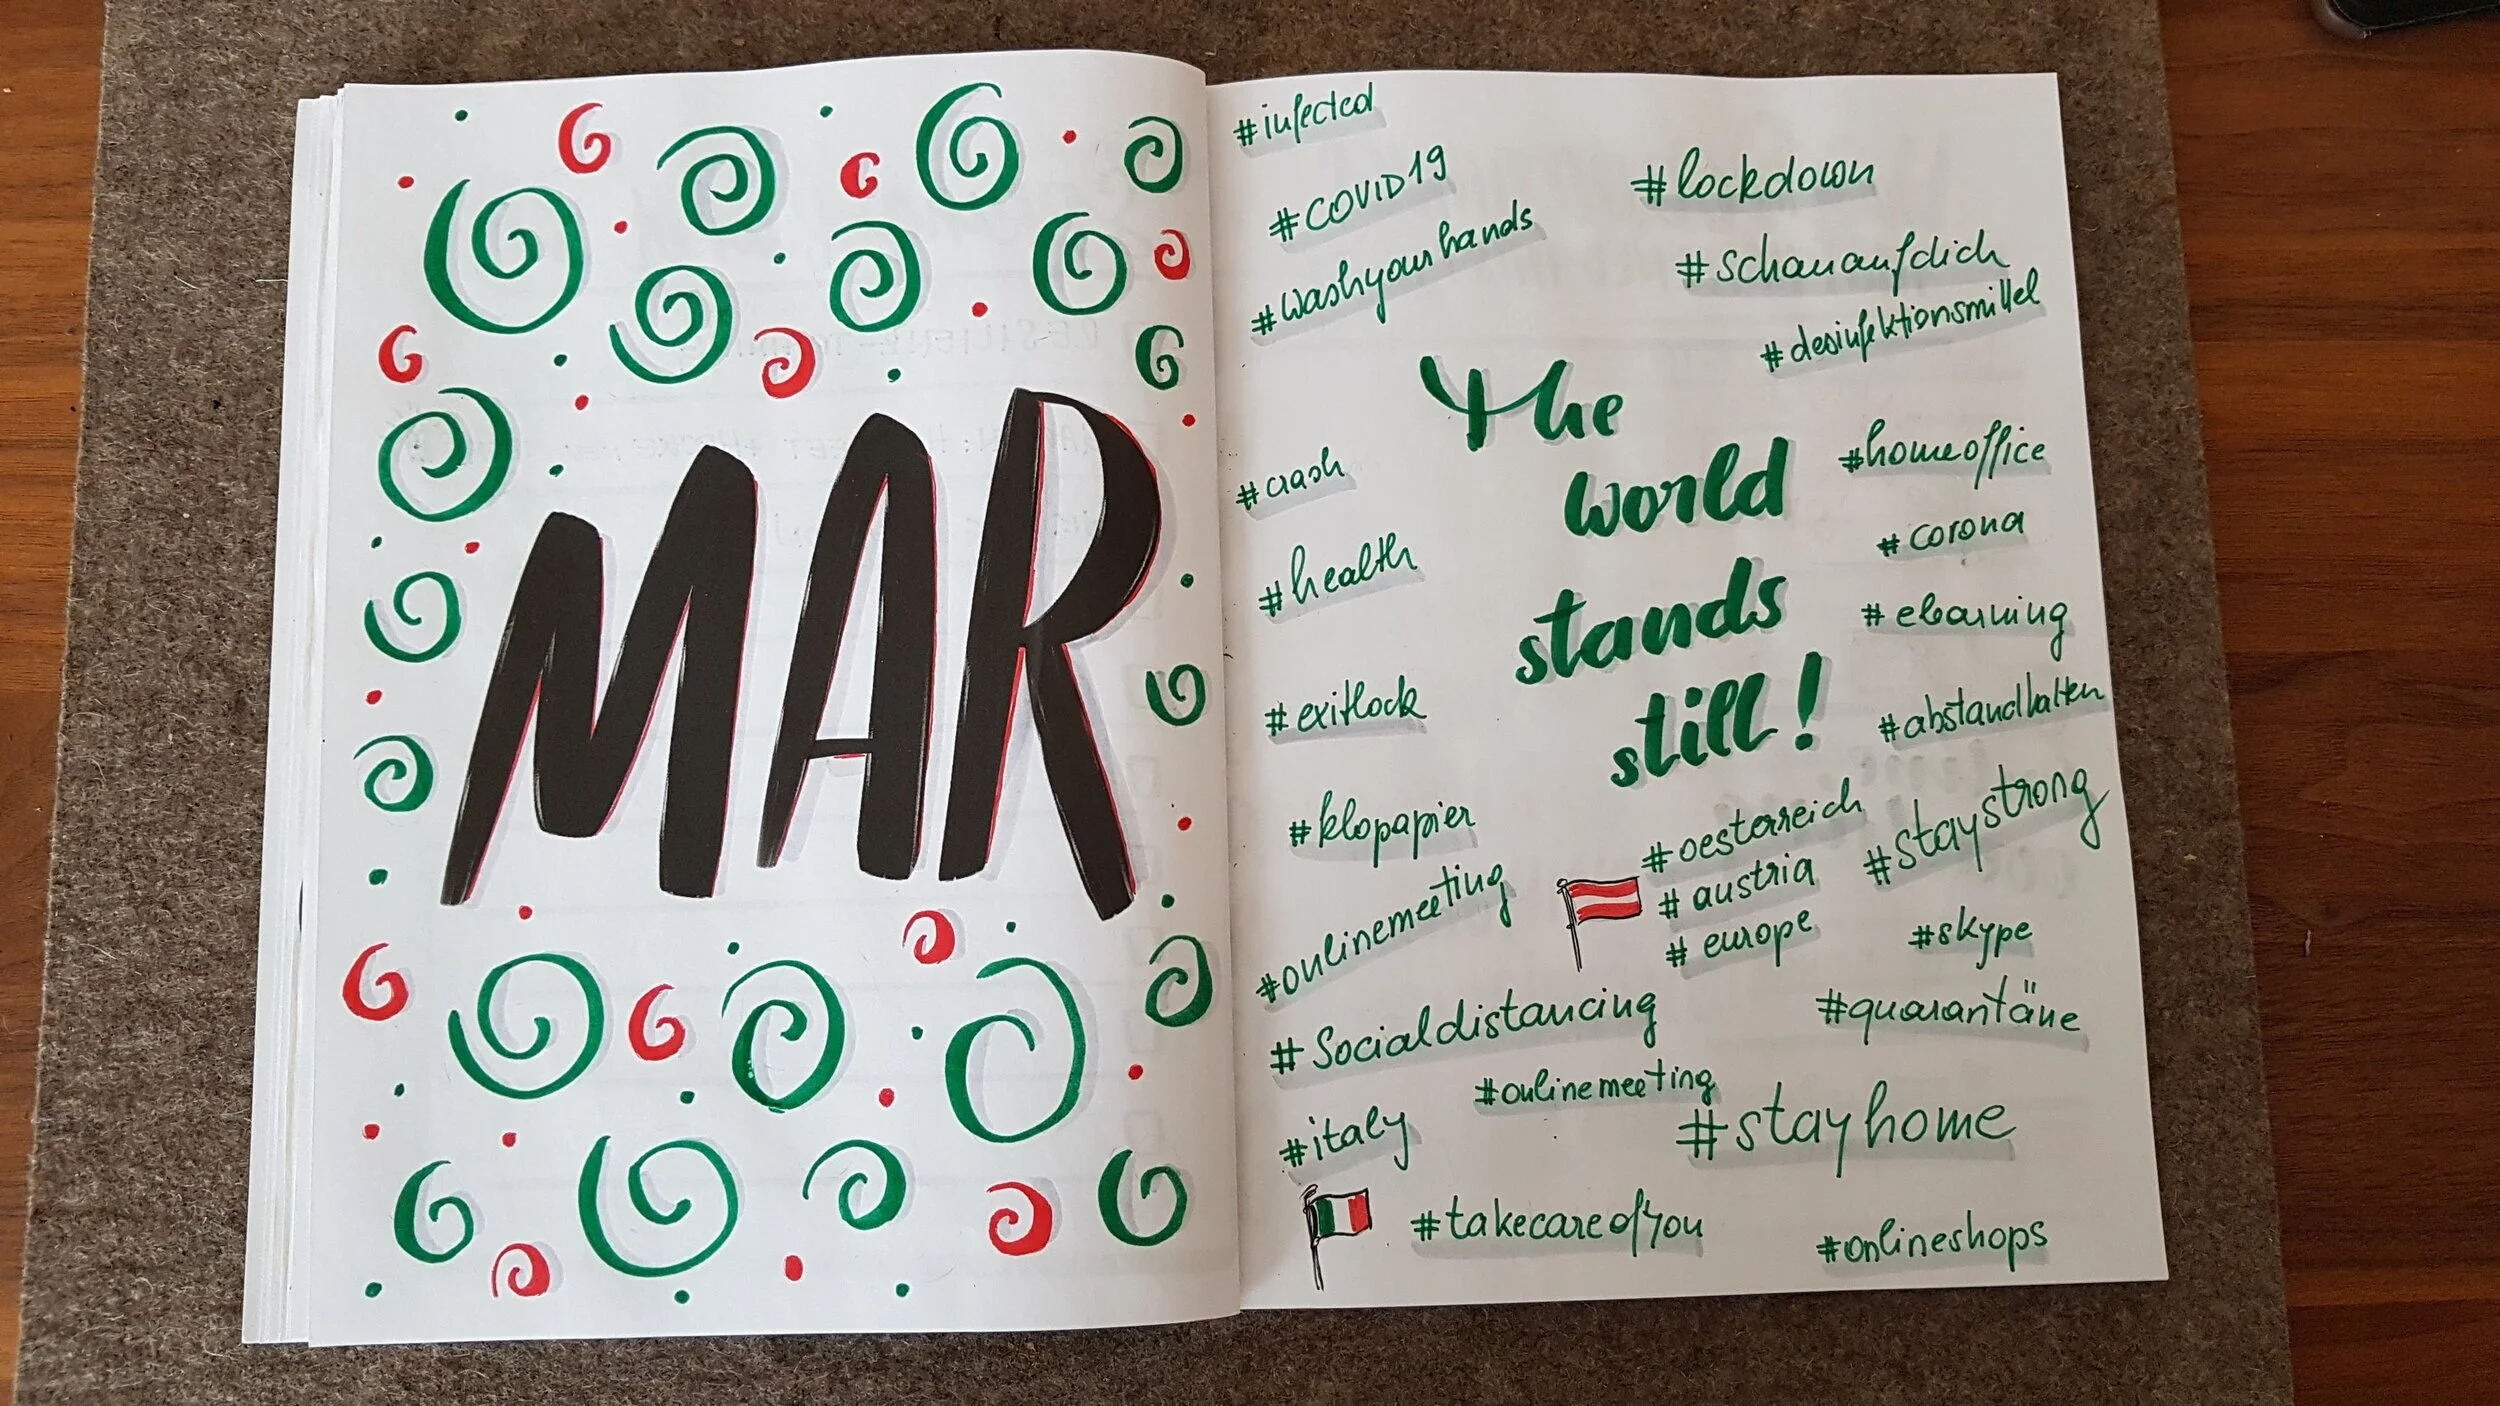 MAR
#infected
#COVID19
#washyourhands
#lockdown
#schauaufdich
#desinfektionsmittel
The
world
stands
still!
#crash
#health
#exitlock
#klopapier
#onlinemeeting
#homeoffice
#corona
#elearning
#abstandhalten
#staystrong
#oesterreich
#austria
#europe
#skype
#Socialdistancing
#quarantäne
#onlinemeeting
#stayhome
#italy
#takecareofyou
#onlineshops